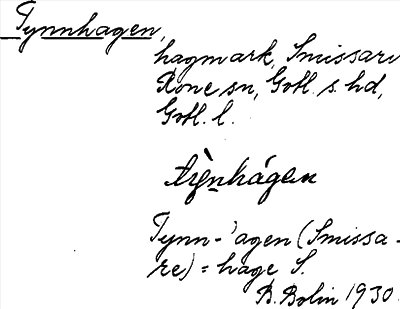 Tynnhagen,
hagmark, Smissarv
Rone sn, Gotl. s. hd,
Gotl. l.
tỳnhágen
Tynn-'agen (Smissa-
re) = hage S.
B. Bolin 1930.